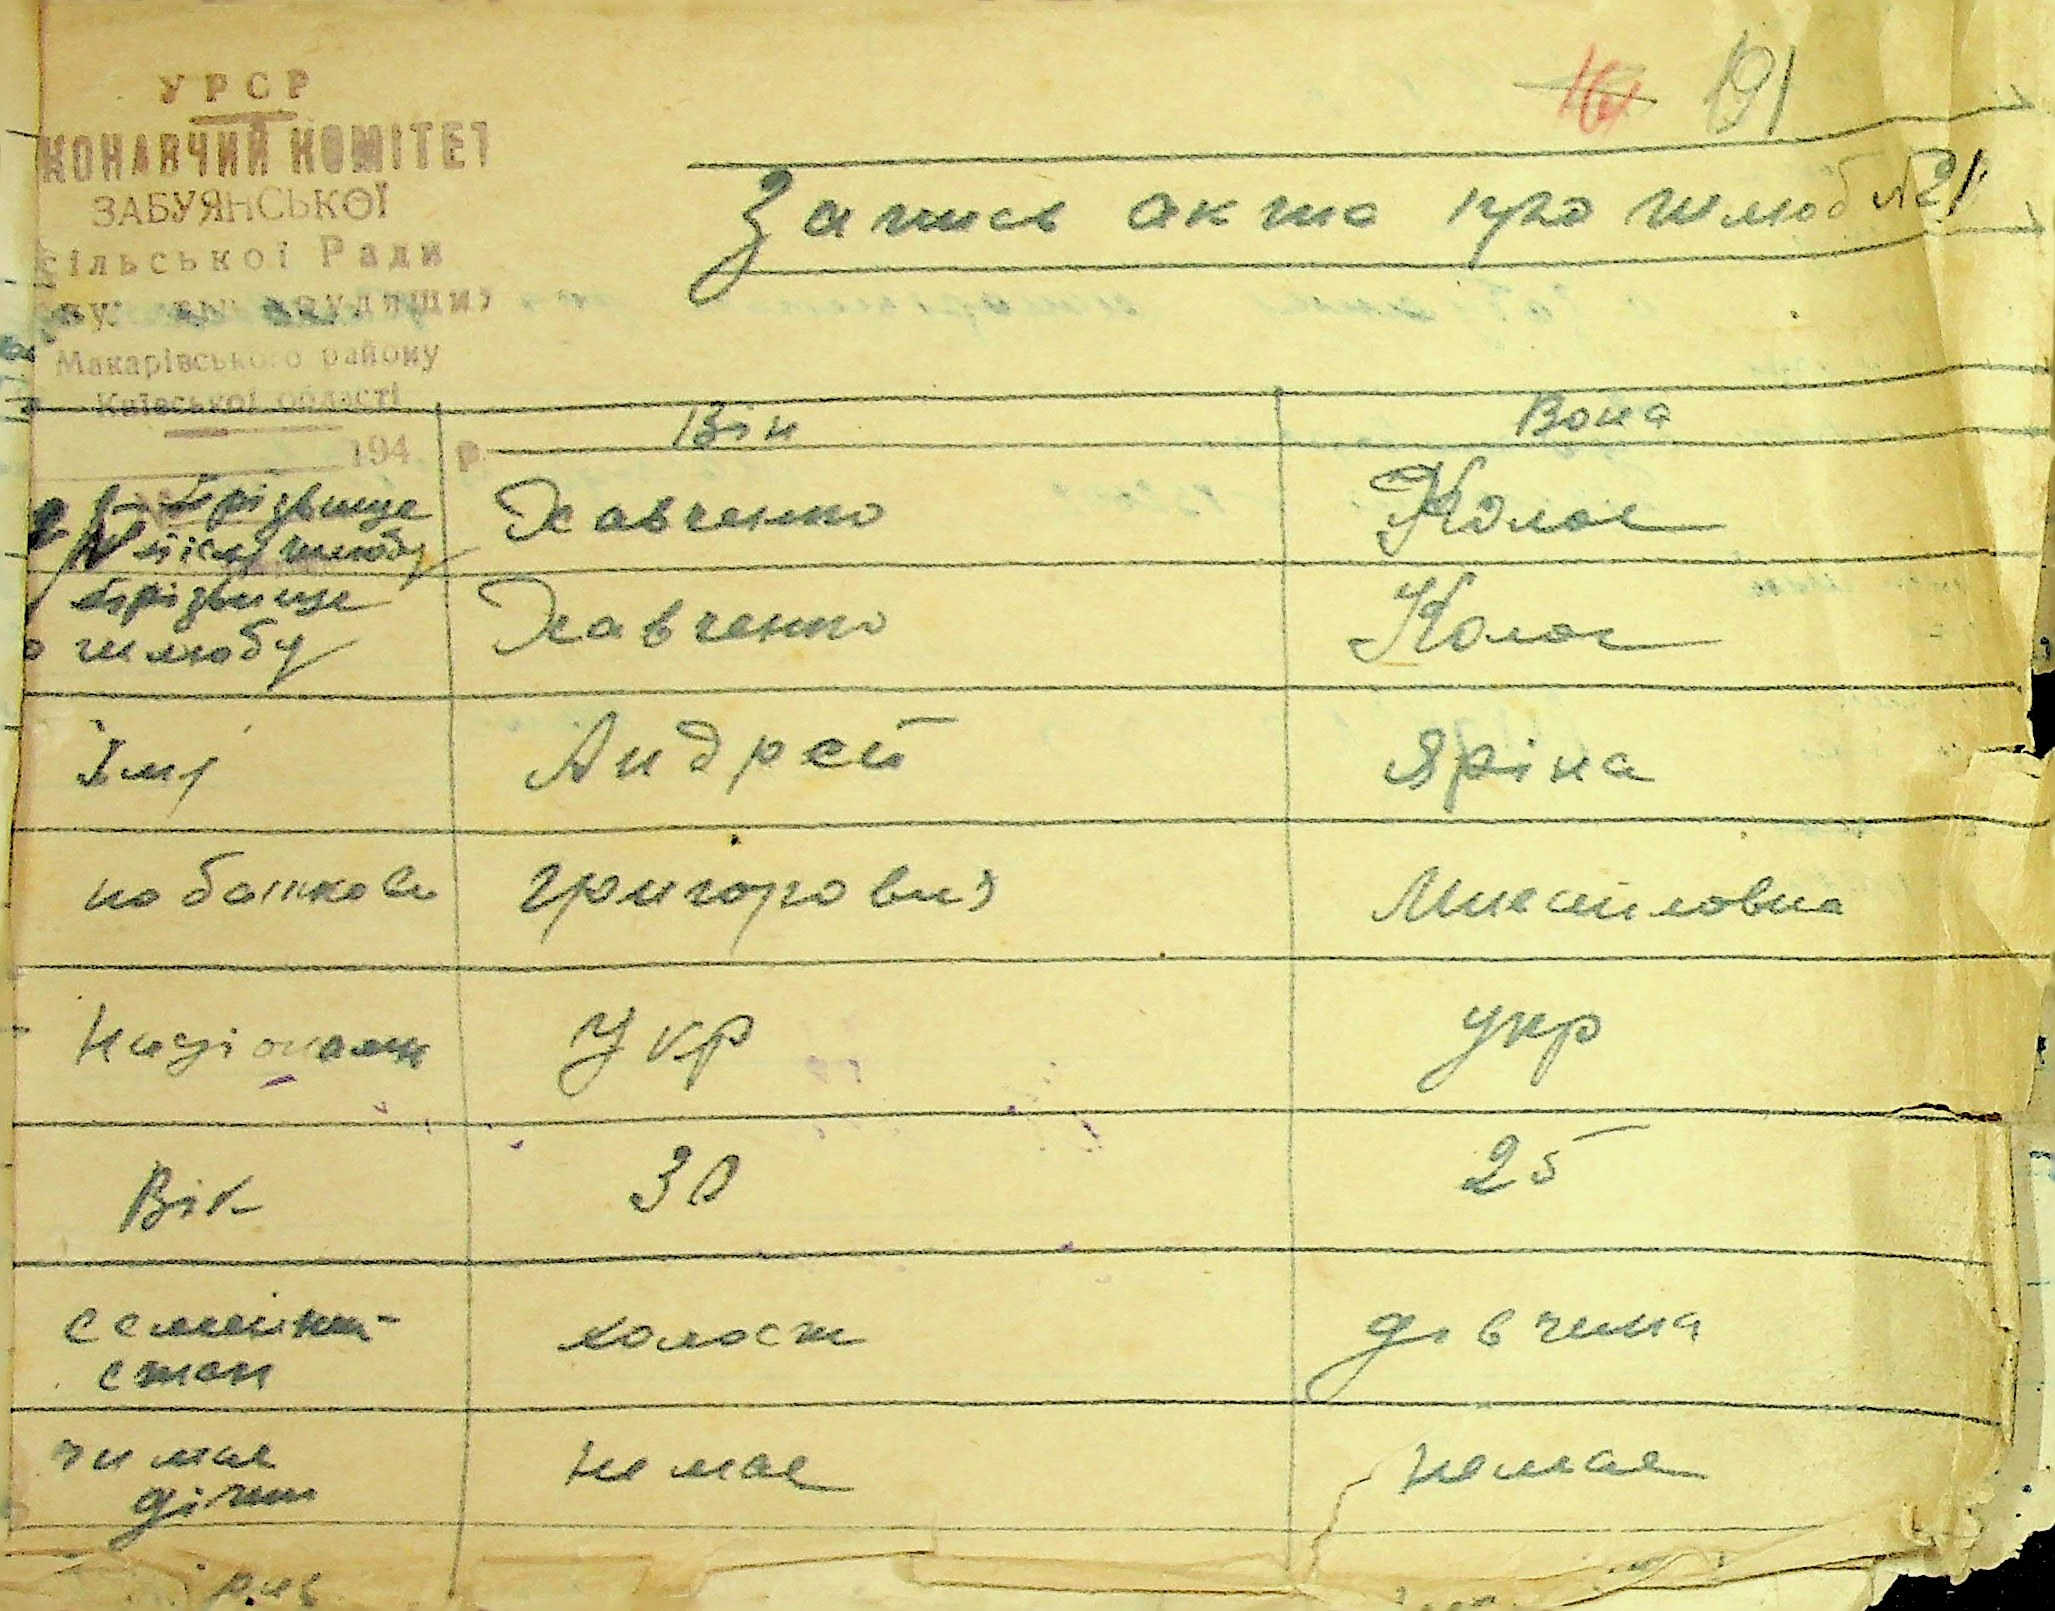 УРСР
16 191
КОНАВЧИЙ КОМІТЕТ
ЗАБУЯНСЬКОЇ
сільської Ради
Запись акта про шлюб №21
Макарівського району
Київської області
194 р.
Він Вона
прізвище Жавченко Колос
після шлюбу
прізвище Жавченко Колос
до шлюбу
Імя Андрей Яріна
по батькови Григорович Михайловна
Національн Укр укр
Вік 30 25
семейний холост дівчина
стан
чи має немає немає
дітей